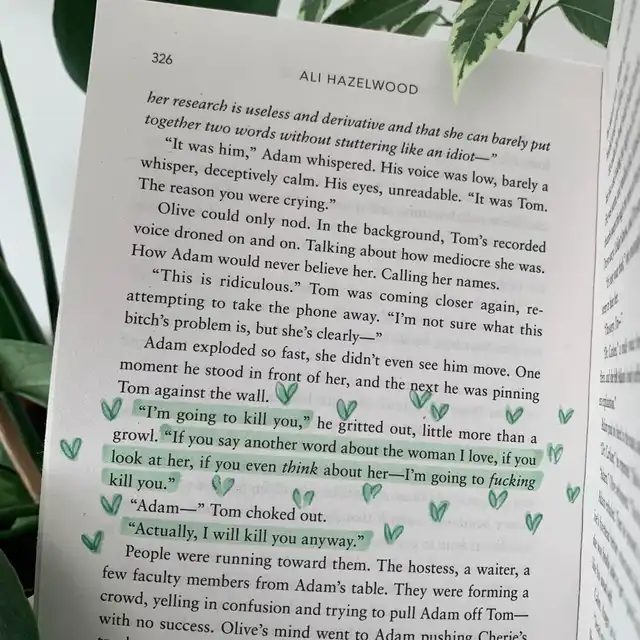 326
ALI HAZELWOOD
her research is useless and derivative and that she can barely put
together two words without stuttering like an idiot—”
“It was him,” Adam whispered. His voice was low, barely a
whisper, deceptively calm. His eyes, unreadable. “It was Tom.
The reason you were crying.”
Olive could only nod. In the background, Tom’s recorded
voice droned on and on. Talking about how mediocre she was.
How Adam would never believe her. Calling her names.
“This is ridiculous.” Tom was coming closer again, re-
attempting to take the phone away. “I’m not sure what this
bitch’s problem is, but she’s clearly—”
Adam exploded so fast, she didn’t even see him move. One
moment he stood in front of her, and the next he was pinning
Tom against the wall.
“I’m going to kill you,” he gritted out, little more than a
growl. “If you say another word about the woman I love, if you
look at her, if you even think about her—I’m going to fucking
kill you.”
“Adam—” Tom choked out.
“Actually, I will kill you anyway.”
People were running toward them. The hostess, a waiter, a
few faculty members from Adam’s table. They were forming a
crowd, yelling in confusion and trying to pull Adam off Tom—
with no success. Olive’s mind went to Adam pushing Cherie’s